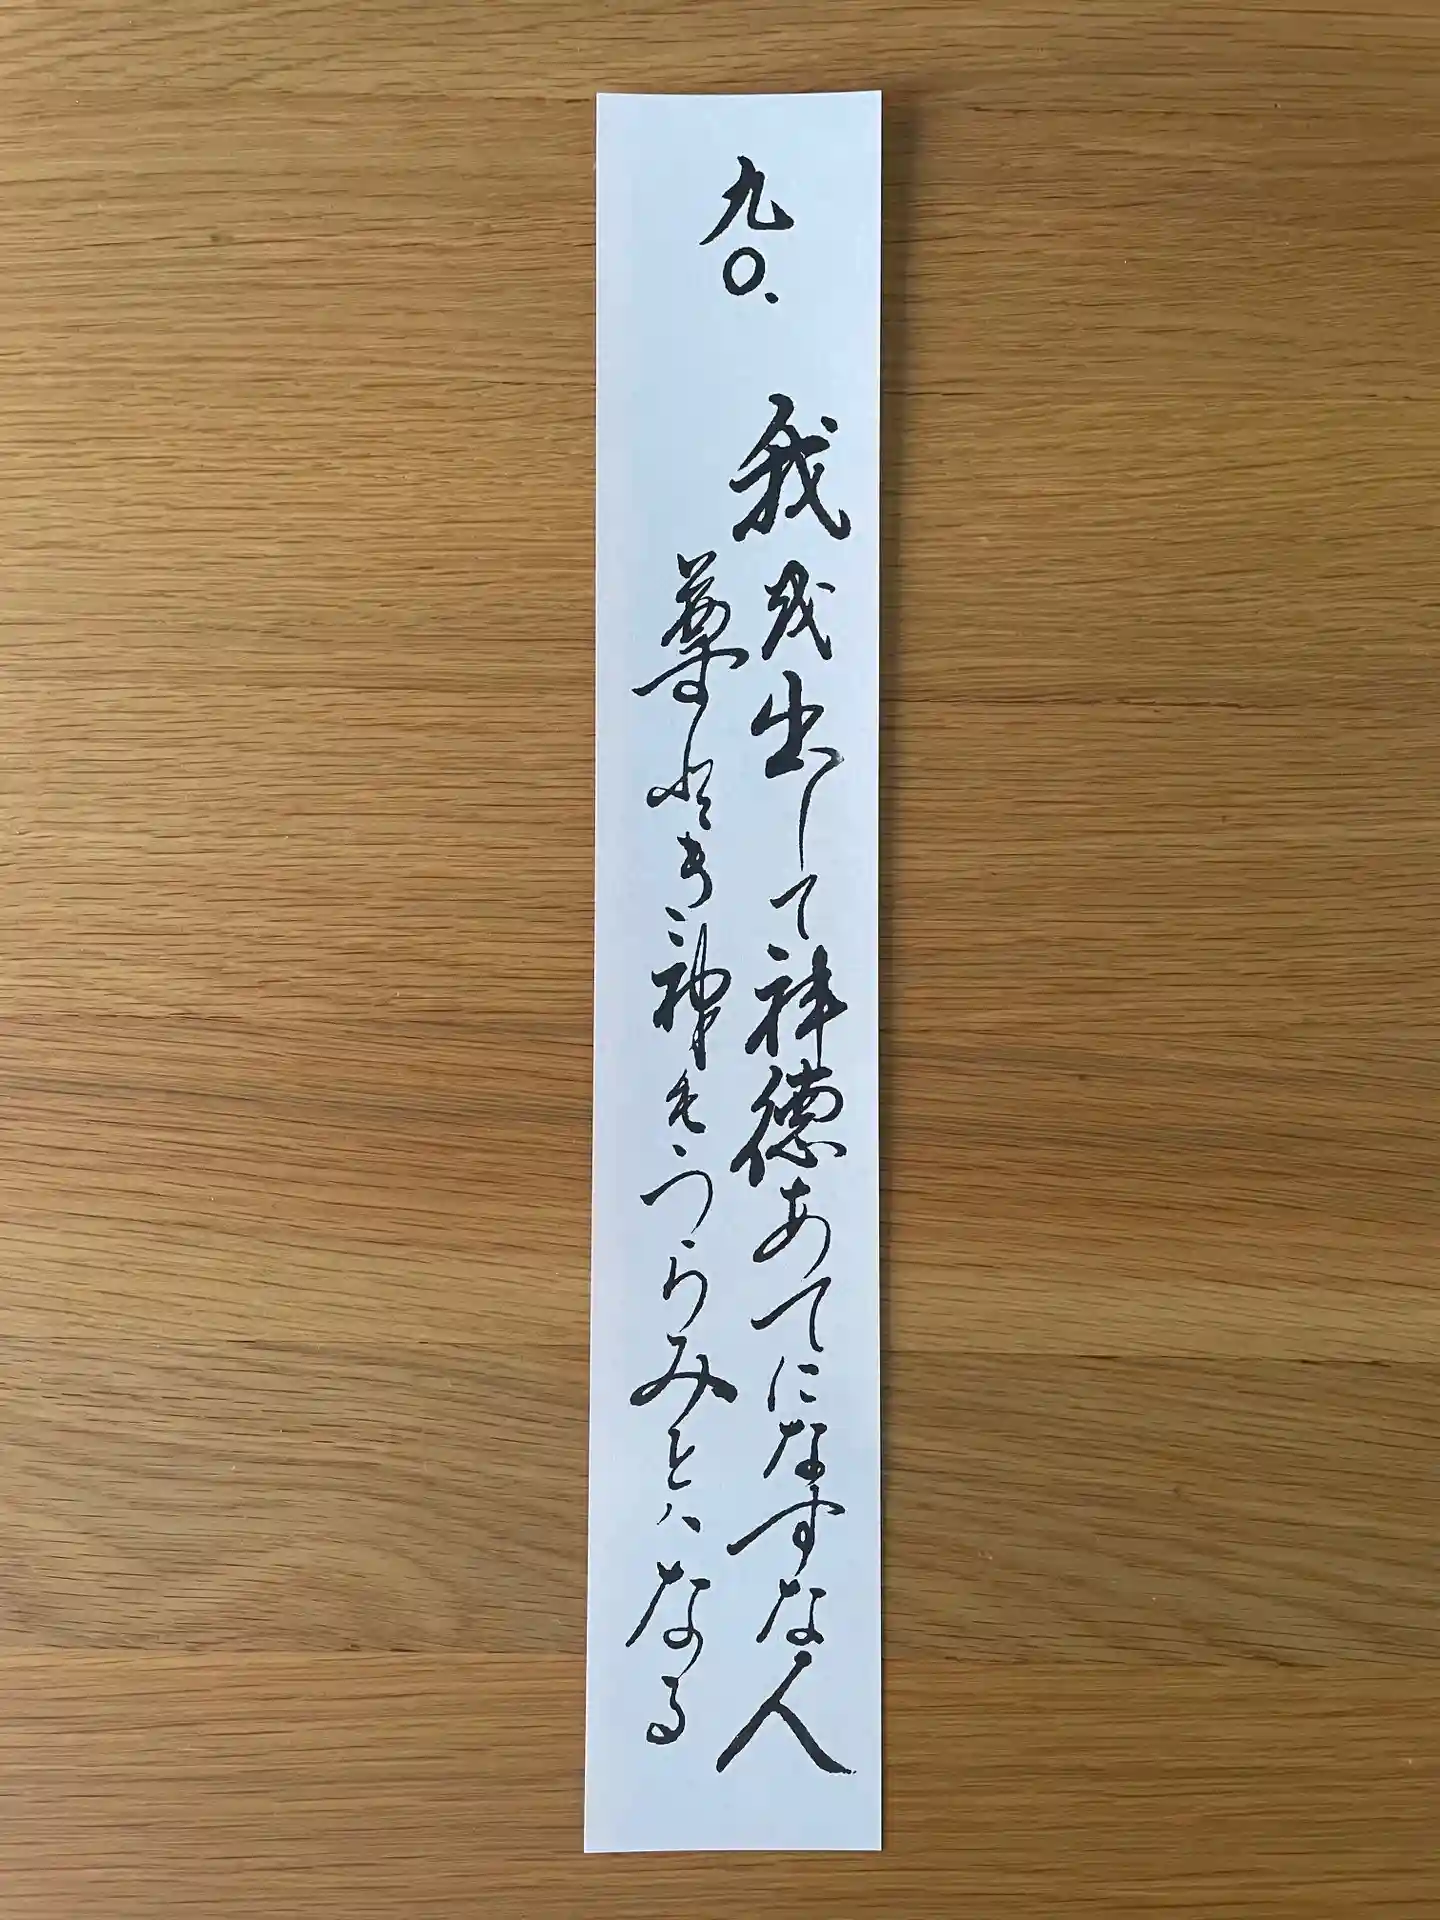 九〇.
我を出して神徳あてになすな人
尊とき神もうらみとハなる